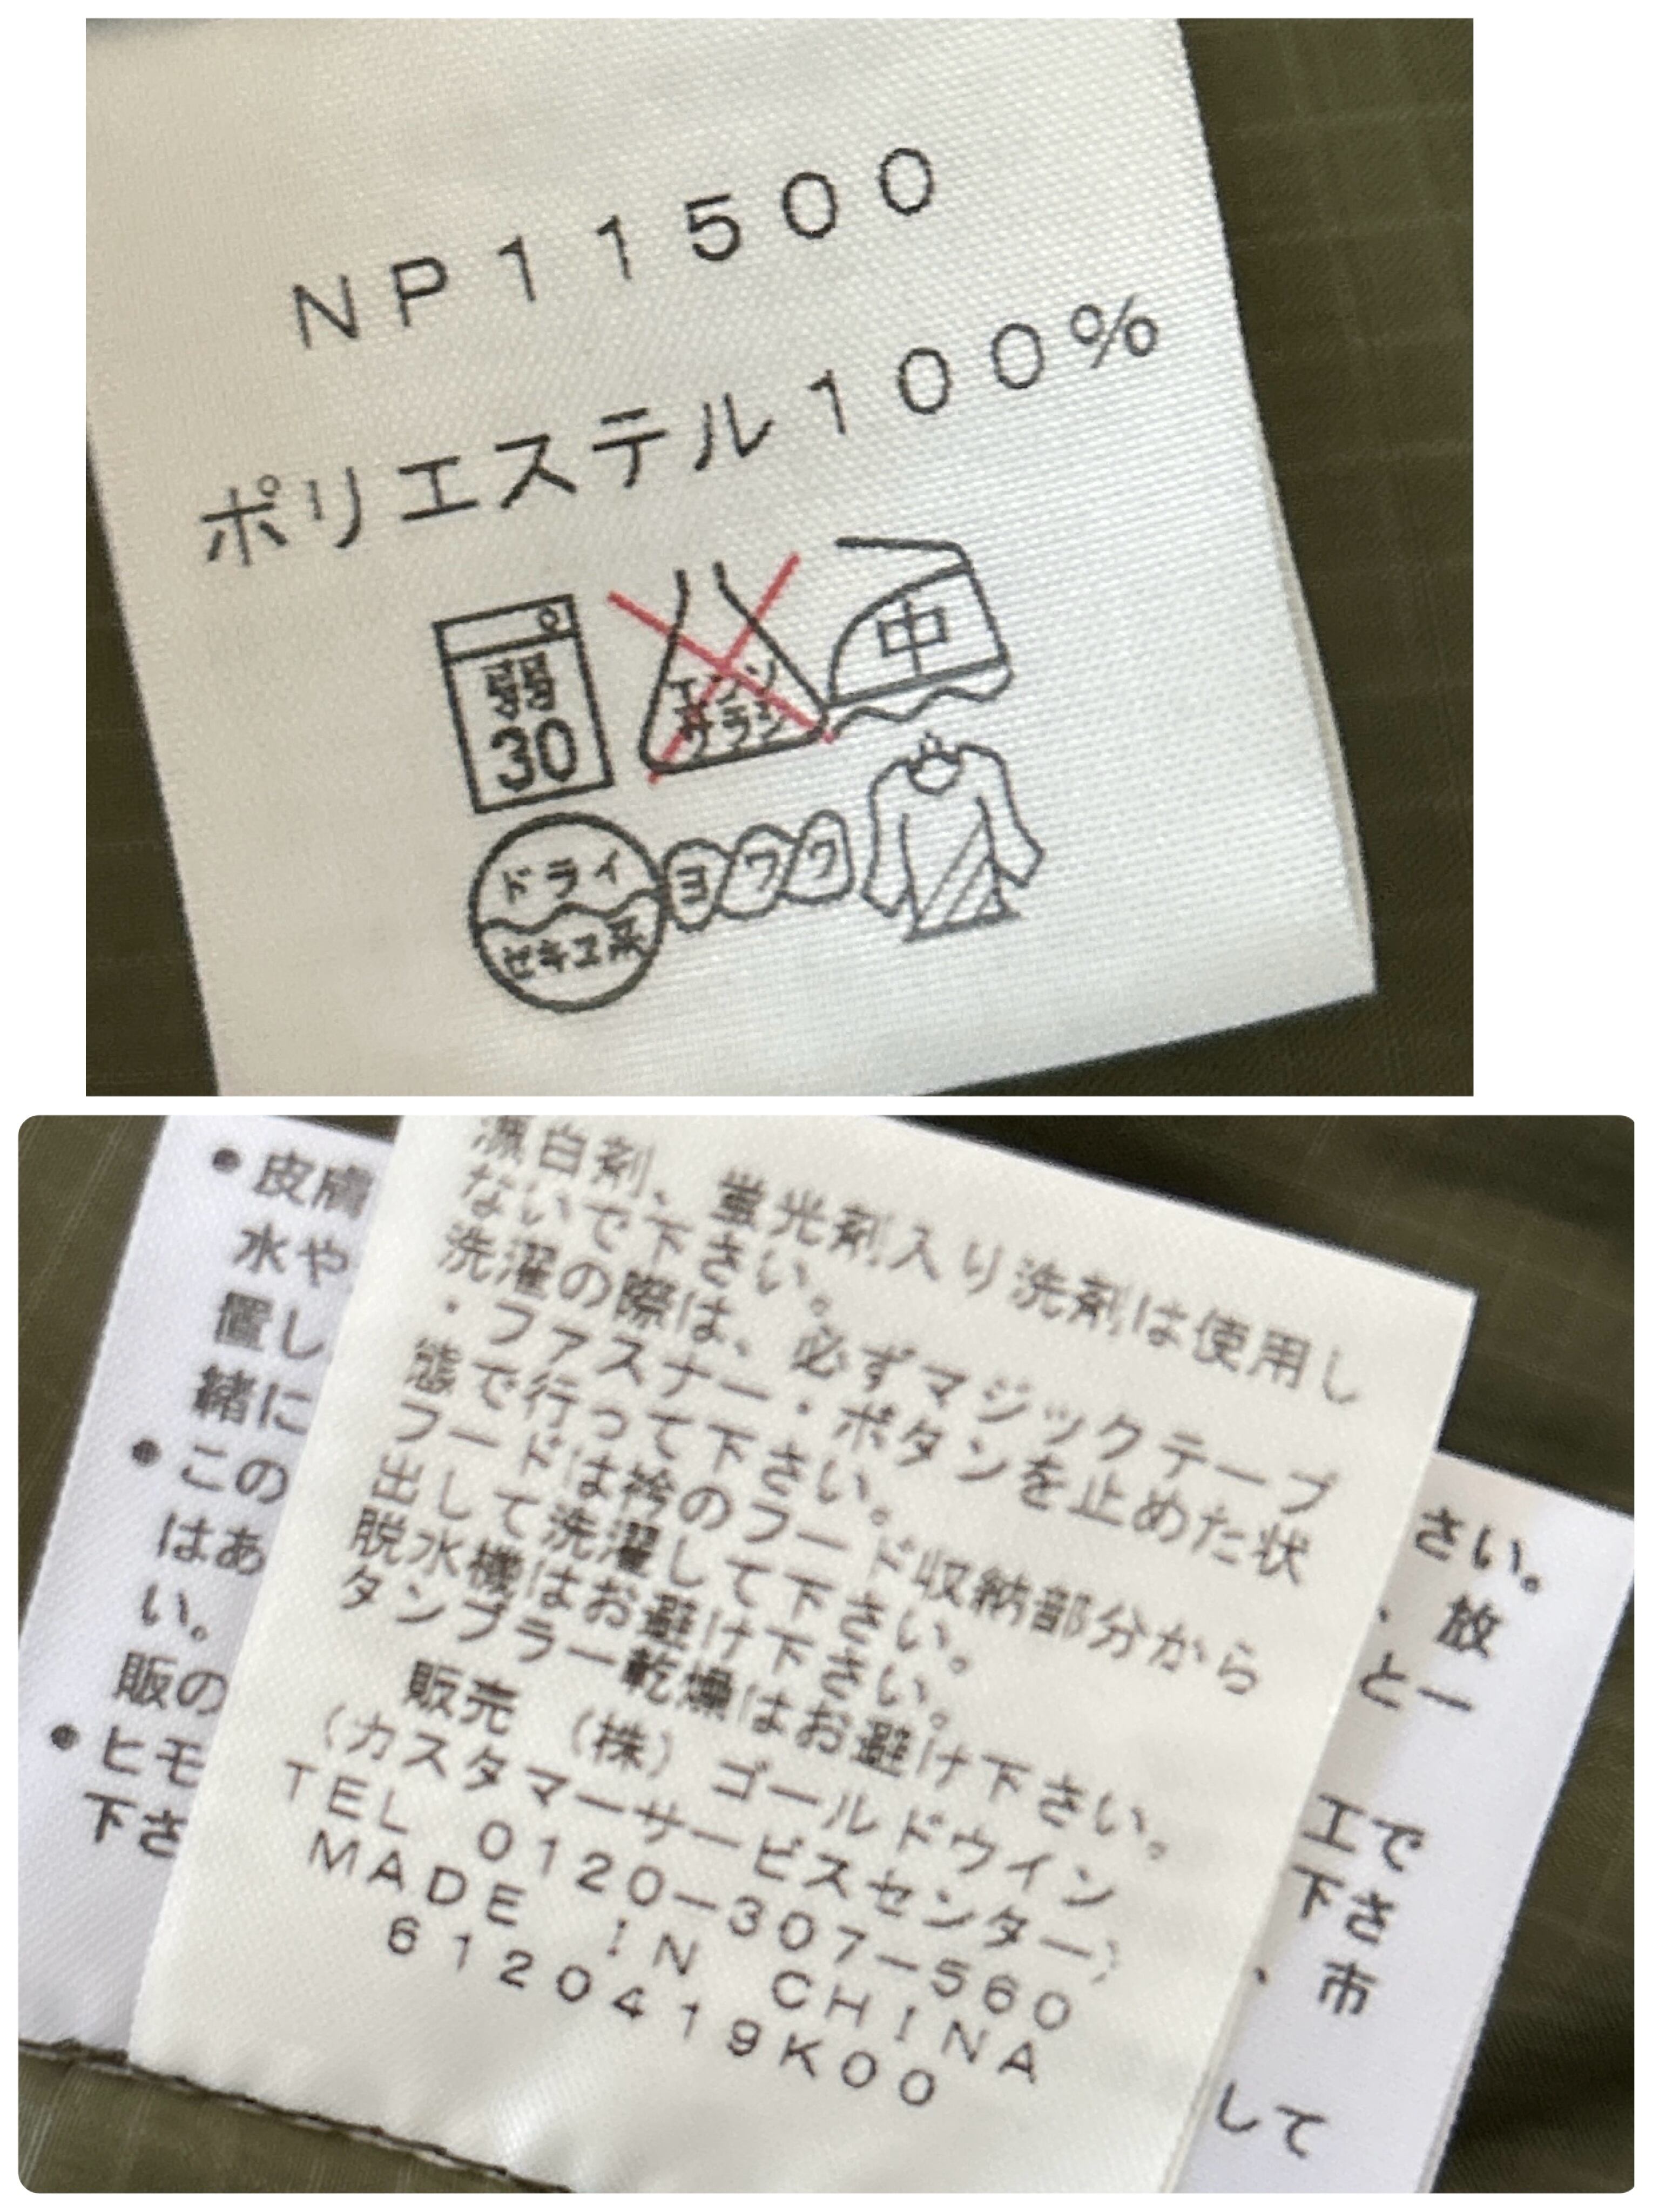 NP11500
ポリエステル100%
弱
30
エンソ
サラシ
中
ドライ
セキユ系
ヨワク
漂白剤、蛍光剤入り洗剤は使用し
ないで下さい。
洗濯の際は、必ずマジックテープ
・ファスナー・ボタンを止めた状
態で行って下さい。
フードは衿のフード収納部分から
出して洗濯して下さい。
脱水機はお避け下さい。
タンブラー乾燥はお避け下さい。
販売 (株)ゴールドウイン
(カスタマーサービスセンター)
TEL 0120-307-560
MADE IN CHINA
6120419K00
●皮膚
水や
置し
緒に
●この
はあ
い。
販の
●ヒモ
下さ
さい。
、放
と一
工で
下さ
、市
して